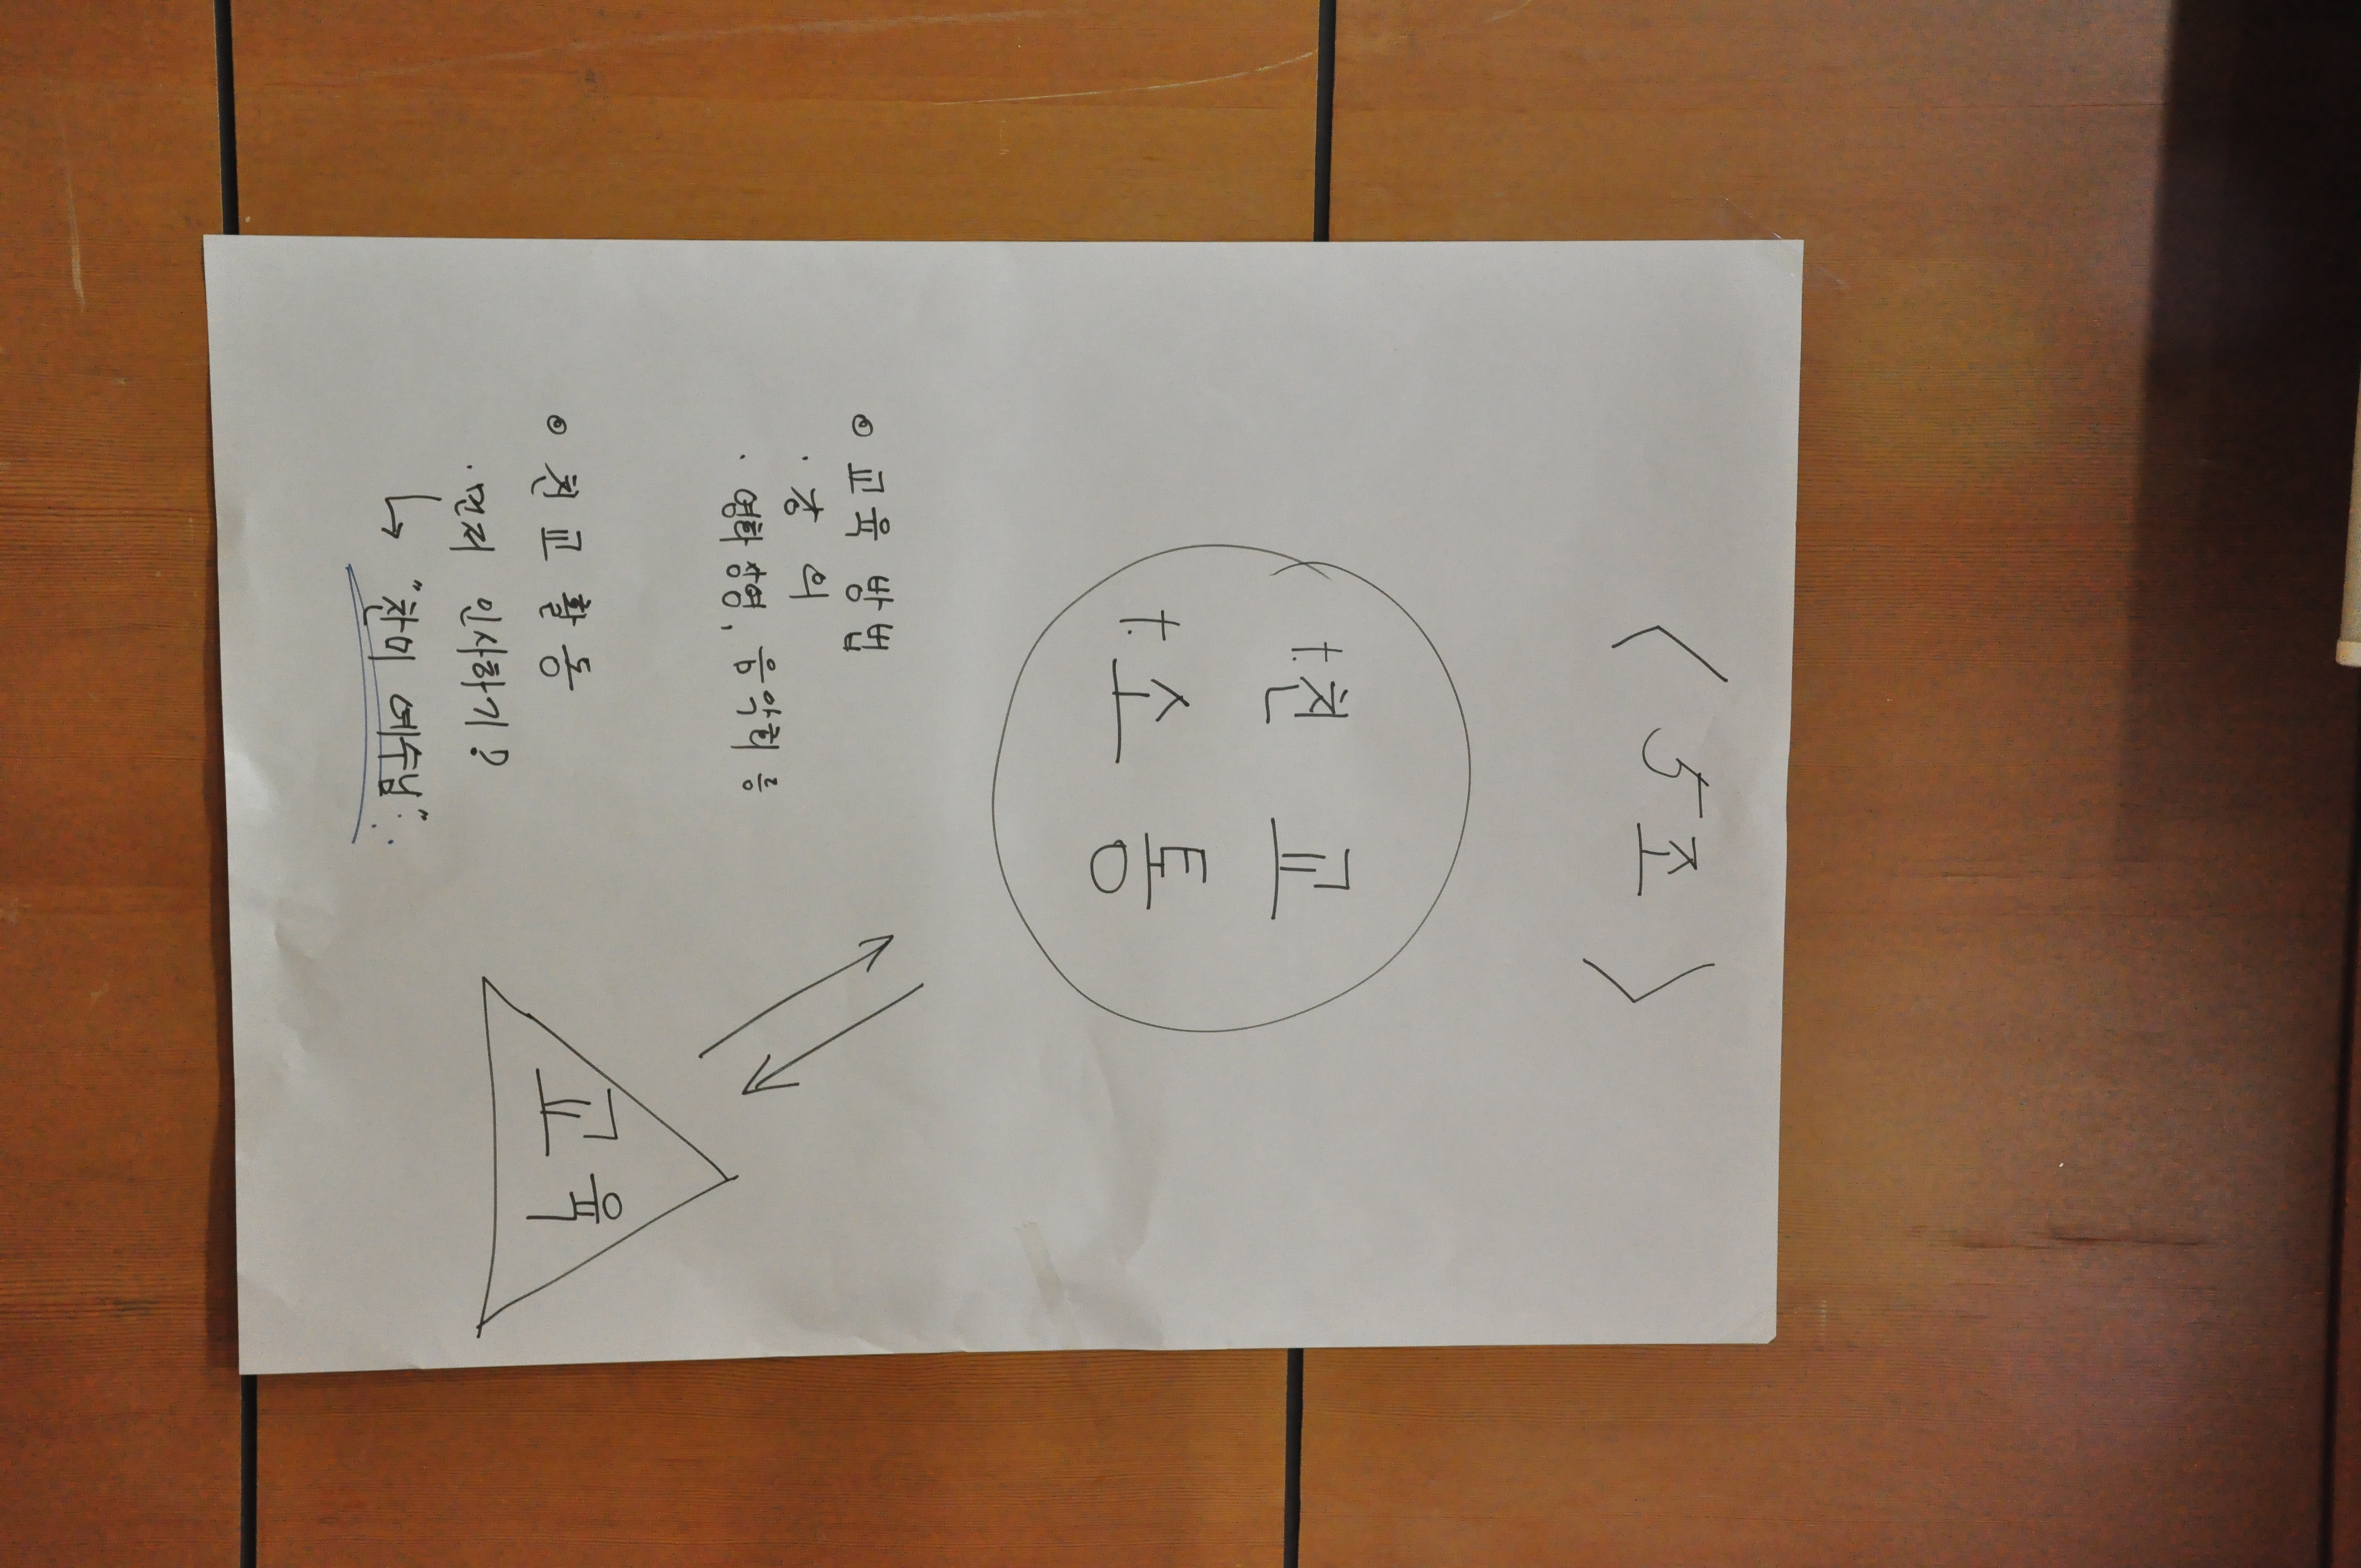 < 5조 >
†. 친 교
†. 소 통
교 육
◎ 교육 방법
· 강 의
· 영화 상영, 음악회 등
◎ 친 교 활 동
· 먼저 인사하기?
↳ "찬미 예수님"